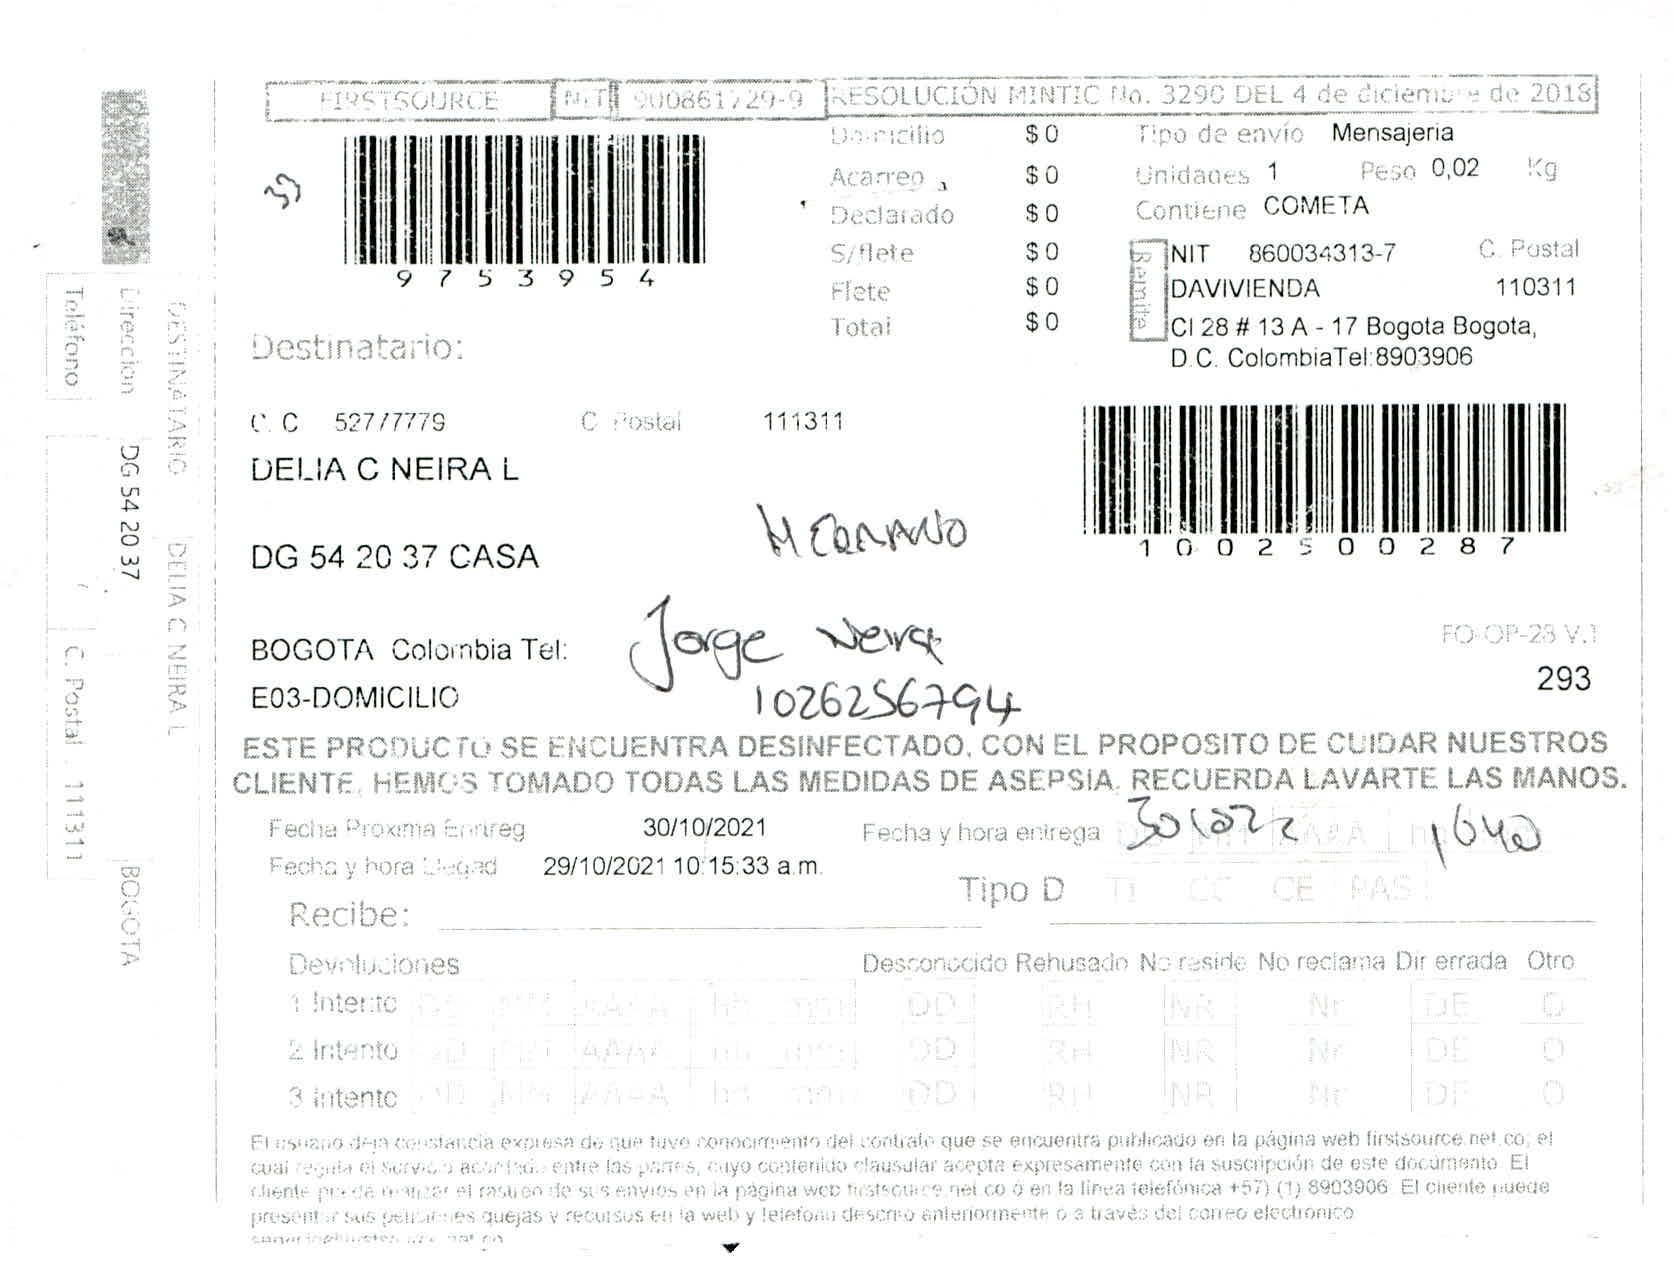 FIRSTSOURCE NIT 900861729-9 RESOLUCIÓN MINTIC No. 3290 DEL 4 de diciembre de 2018
Domicilio $ 0
Acarreo $ 0
Declarado $ 0
S/flete $ 0
Flete $ 0
Total $ 0
Tipo de envío Mensajeria
Unidades 1 Peso 0,02 Kg
Contiene COMETA
Remite
NIT 860034313-7 C. Postal
DAVIVIENDA 110311
Cl 28 # 13 A - 17 Bogota Bogota,
D.C. ColombiaTel:8903906
9753954
Destinatario:
C. C 52777779 C Postal 111311
DELIA C NEIRA L
DG 54 20 37 CASA
HERMANO
1002500287
BOGOTA Colombia Tel:
Jorge Neira
E03-DOMICILIO
1026256794
FO-OP-28 V.1
293
ESTE PRODUCTO SE ENCUENTRA DESINFECTADO, CON EL PROPOSITO DE CUIDAR NUESTROS
CLIENTE, HEMOS TOMADO TODAS LAS MEDIDAS DE ASEPSIA. RECUERDA LAVARTE LAS MANOS.
Fecha Proxima Entreg 30/10/2021 Fecha y hora entrega
Fecha y hora Llegad 29/10/2021 10:15:33 a.m.
1040
Tipo D TI CC CE PAS
Recibe:
Devoluciones Desconocido Rehusado No reside No reclama Dir errada Otro
1 Intento DD MM AAAA hh mm DD RH NR Nr DE O
2 Intento DD MM AAAA hh mm DD RH NR Nr DE O
3 Intento DD MM AAAA hh mm DD RH NR Nr DE O
El usuario deja constancia expresa de que tuvo conocimiento del contrato que se encuentra publicado en la página web firstsource.net.co; el
cual regula el servicio acordado entre las partes, cuyo contenido clausular acepta expresamente con la suscripción de este documento. El
cliente puede realizar el rastreo de sus envíos en la página web firstsource.net.co ó en la línea telefónica +57) (1) 8903906. El cliente puede
presentar sus peticiones quejas y recursos en la web y telefono descrito anteriormente o a través del correo electronico
DESTINATARIO DELIA C NEIRA L
Direccion DG 54 20 37 BOGOTA
Teléfono C. Postal 111311